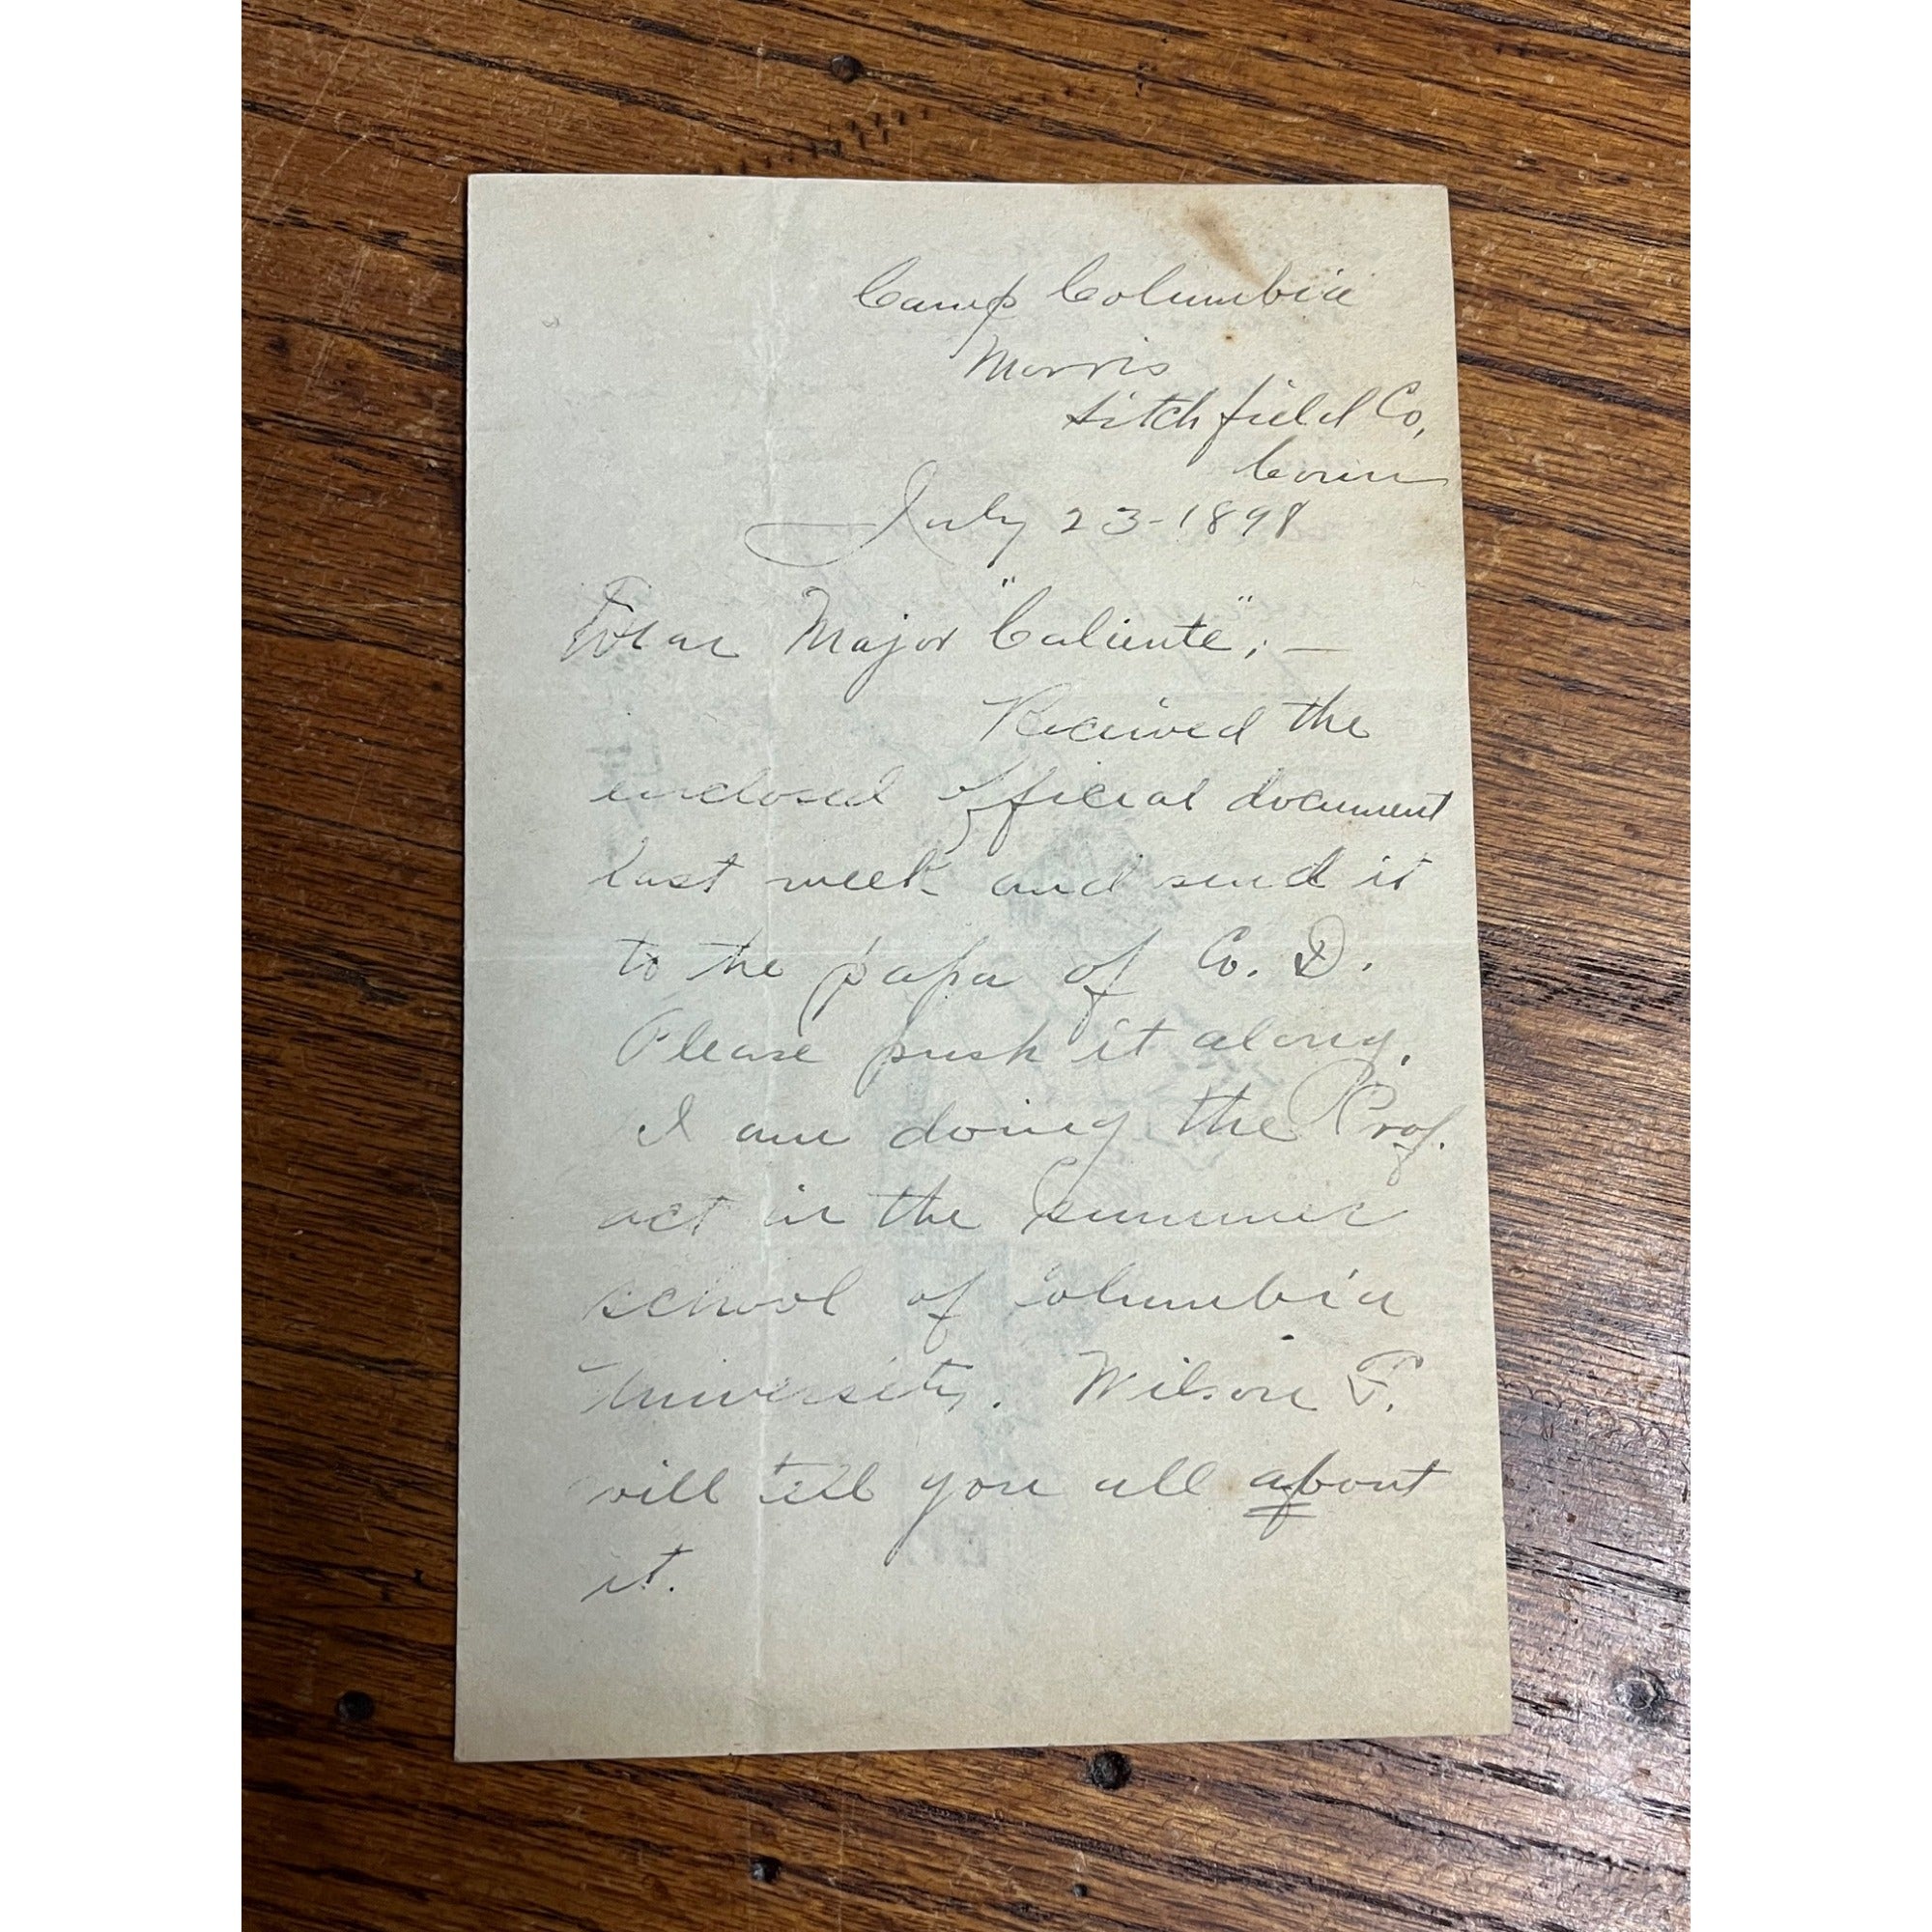 Camp Columbia
Morris
Litchfield Co,
Conn
July 23-1898
Dear Major "Caliente", —
Received the
enclosed official document
last week and send it
to the papa of Co. D.
Please push it along.
I am doing the Prof.
act in the summer
school of Columbia
University. Wilson F.
will tell you all about
it.